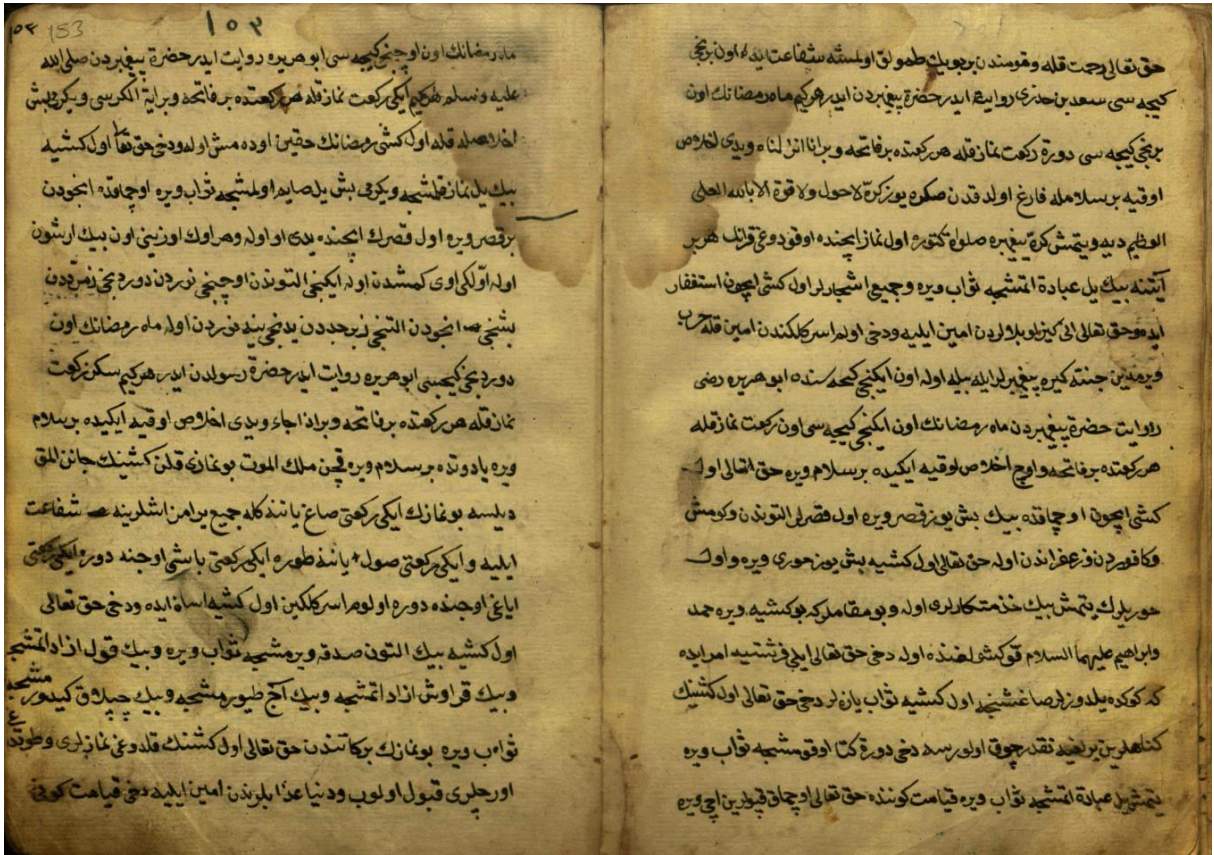 حق تعالی رحمت قله و قومندن بر بویك طمولق اولمشنه شفاعت ایده اون برنجی
کیجه سی سعد بن روایت ایدر حضرة پیغمبردن ایدر هرکیم ماه رمضانك اون
برنجی کیجه سی دورة رکعت نماز قله هر رکعتده بر فاتحه و بر انا انزلناه و یدی اخلاص
اوقیه بر سلامله فارغ اولدقدن صکره یوز کرّة لاحول ولا قوة الا بالله العلی
العظیم دیه و یتمش کرّه پیغمبره صلواة کتوره اول نماز ایچنده اوقودوغی قرانك هر بر
آیتنه بیك یل عبادة اتمشجه ثواب ویره و جمیع اشجارلر اول کشی ایچون استغفار
ایده و حق تعالی انی کیزلو بلالردن امین ایلیه ودخی اولم اسرکلکندن امین قله حرب
ویرمدین جنته کیره پیغمبرلر ایله بیله اوله اون ایکنجی کیجه سنده ابو هریره رضی
روایت حضرة پیغمبردن ماه رمضانك اون ایکنجی کیجه سی اون رکعت نماز قله
هر رکعتده بر فاتحه و اوج اخلاص اوقیه ایکیده بر سلام ویره حق تعالی اول
کشی ایچون اوچماقده بیك بش یوز قصر ویره اول قصرلر التوندن و کومش
و کافوردن و زعفراندن اوله حق تعالی اول کشیه بش یوز حوری ویره و اول
حوریلرك یتمش بیك خذمتکارلری اوله و بو مقاملر که بو کشیه ویره حمد
وابراهیم علیهما السلام قوکشی لغنده اوله دخی حق تعالی ایلی فرشتیه امر ایده
که کوکده یلدوزلر صاغشنجه اول کشیه ثواب یازه لر دخی حق تعالی اول کشینك
کناهلرین یرلغیه نقدر چوق اولورسه دخی دورة کتا اوقومشجه ثواب ویره
یتمش یل عبادة اتمشجه ثواب ویره قیامت کوننده حق تعالی اوچماق قپولرین اچی ویره
١٥٣
١٥٣ 153
ماه رمضانك اون اوچنجی کیجه سی ابو هریره روایت ایدر حضرة پیغمبردن صلی الله
علیه وسلم هرکیم ایکی رکعت نماز قله هر رکعتده بر فاتحه و بر ایة الکرسی و یکرمی بش
اخلاصله قله اول کشی رمضانك حقین اوده مش اوله ودخی حق تعا اول کشیه
بیك یل نماز قلمشجه و یکرمی بش یل صایم اولمشجه ثواب ویره اوچماقده انجودن
بر قصر ویره اول قصرك ایچنده یدی او اوله و هر اوك اوزینی اون بیك ارشون
اوله اوّلکی اوی کمشدن اوله ایکنجی التوندن اوچنجی نوردن دوردنجی زمرّددن
بشنجی انجودن التنجی زبرجددن یدنجی ینه نوردن اوله ماه رمضانك اون
دوردنجی کیجسی ابو هریره روایت ایدر حضرة رسولدن ایدر هرکیم سکز رکعت
نماز قله هر رکعتده بر فاتحه و بر اذا جاء و یدی اخلاص اوقیه ایکیده بر سلام
ویره یا دوتده بر سلام ویره قچن ملك الموت بو نمازی قلن کشینك جانن المق
دیلسه بو نمازك ایکی رکعتی صاغ یاننه کله جمیع یرامز اشلرینه شفاعت
ایلیه و ایکی رکعتی صول یاننه طوره ایکی رکعتی باشی اوجنه دوره ایکی رکعتی
ایاغی اوجنده دوره اولوم اسرکلکین اول کشیه اسان ایده ودخی حق تعالی
اول کشیه بیك التون صدقه ویرمشجه ثواب ویره و بیك قول ازاد اتمشجه
و بیك قراوش ازاد اتمشجه و بیك آج طیورمشجه و بیك چپلاق کیدورمشجه
ثواب ویره بو نمازك برکاتندن حق تعالی اول کشینك قلدوغی نمازلری و طوتدوغی
اورجلری قبول اولوب و دنیا عذابلرندن امین ایلیه دخی قیامت کونی